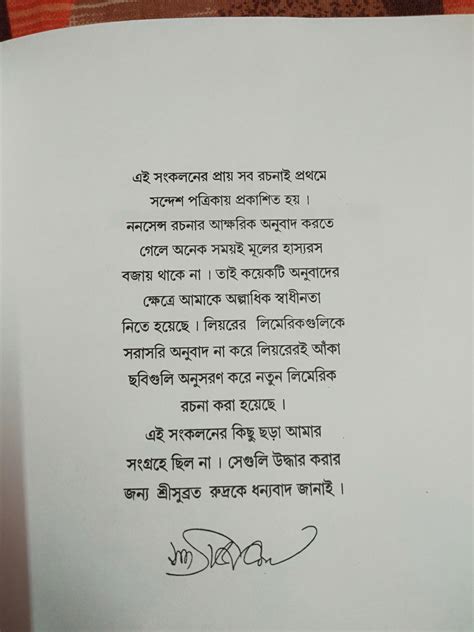 এই সংকলনের প্রায় সব রচনাই প্রথমে
সন্দেশ পত্রিকায় প্রকাশিত হয় ।
ননসেন্স রচনার আক্ষরিক অনুবাদ করতে
গেলে অনেক সময়ই মূলের হাস্যরস
বজায় থাকে না । তাই কয়েকটি অনুবাদের
ক্ষেত্রে আমাকে অল্পাধিক স্বাধীনতা
নিতে হয়েছে । লিয়রের লিমেরিকগুলিকে
সরাসরি অনুবাদ না করে লিয়রেরই আঁকা
ছবিগুলি অনুসরণ করে নতুন লিমেরিক
রচনা করা হয়েছে ।
এই সংকলনের কিছু ছড়া আমার
সংগ্রহে ছিল না । সেগুলি উদ্ধার করার
জন্য শ্রীসুব্রত রুদ্রকে ধন্যবাদ জানাই ।